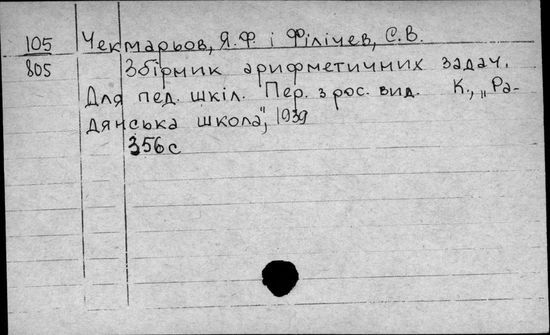 105 Чекмарьов, Я.Ф. і Філічев, С.В.
805 Збірник арифметичних задач.
Для пед. шкіл. Пер. з рос. вид. К., „Ра-
дянська школа", 1939
356 с